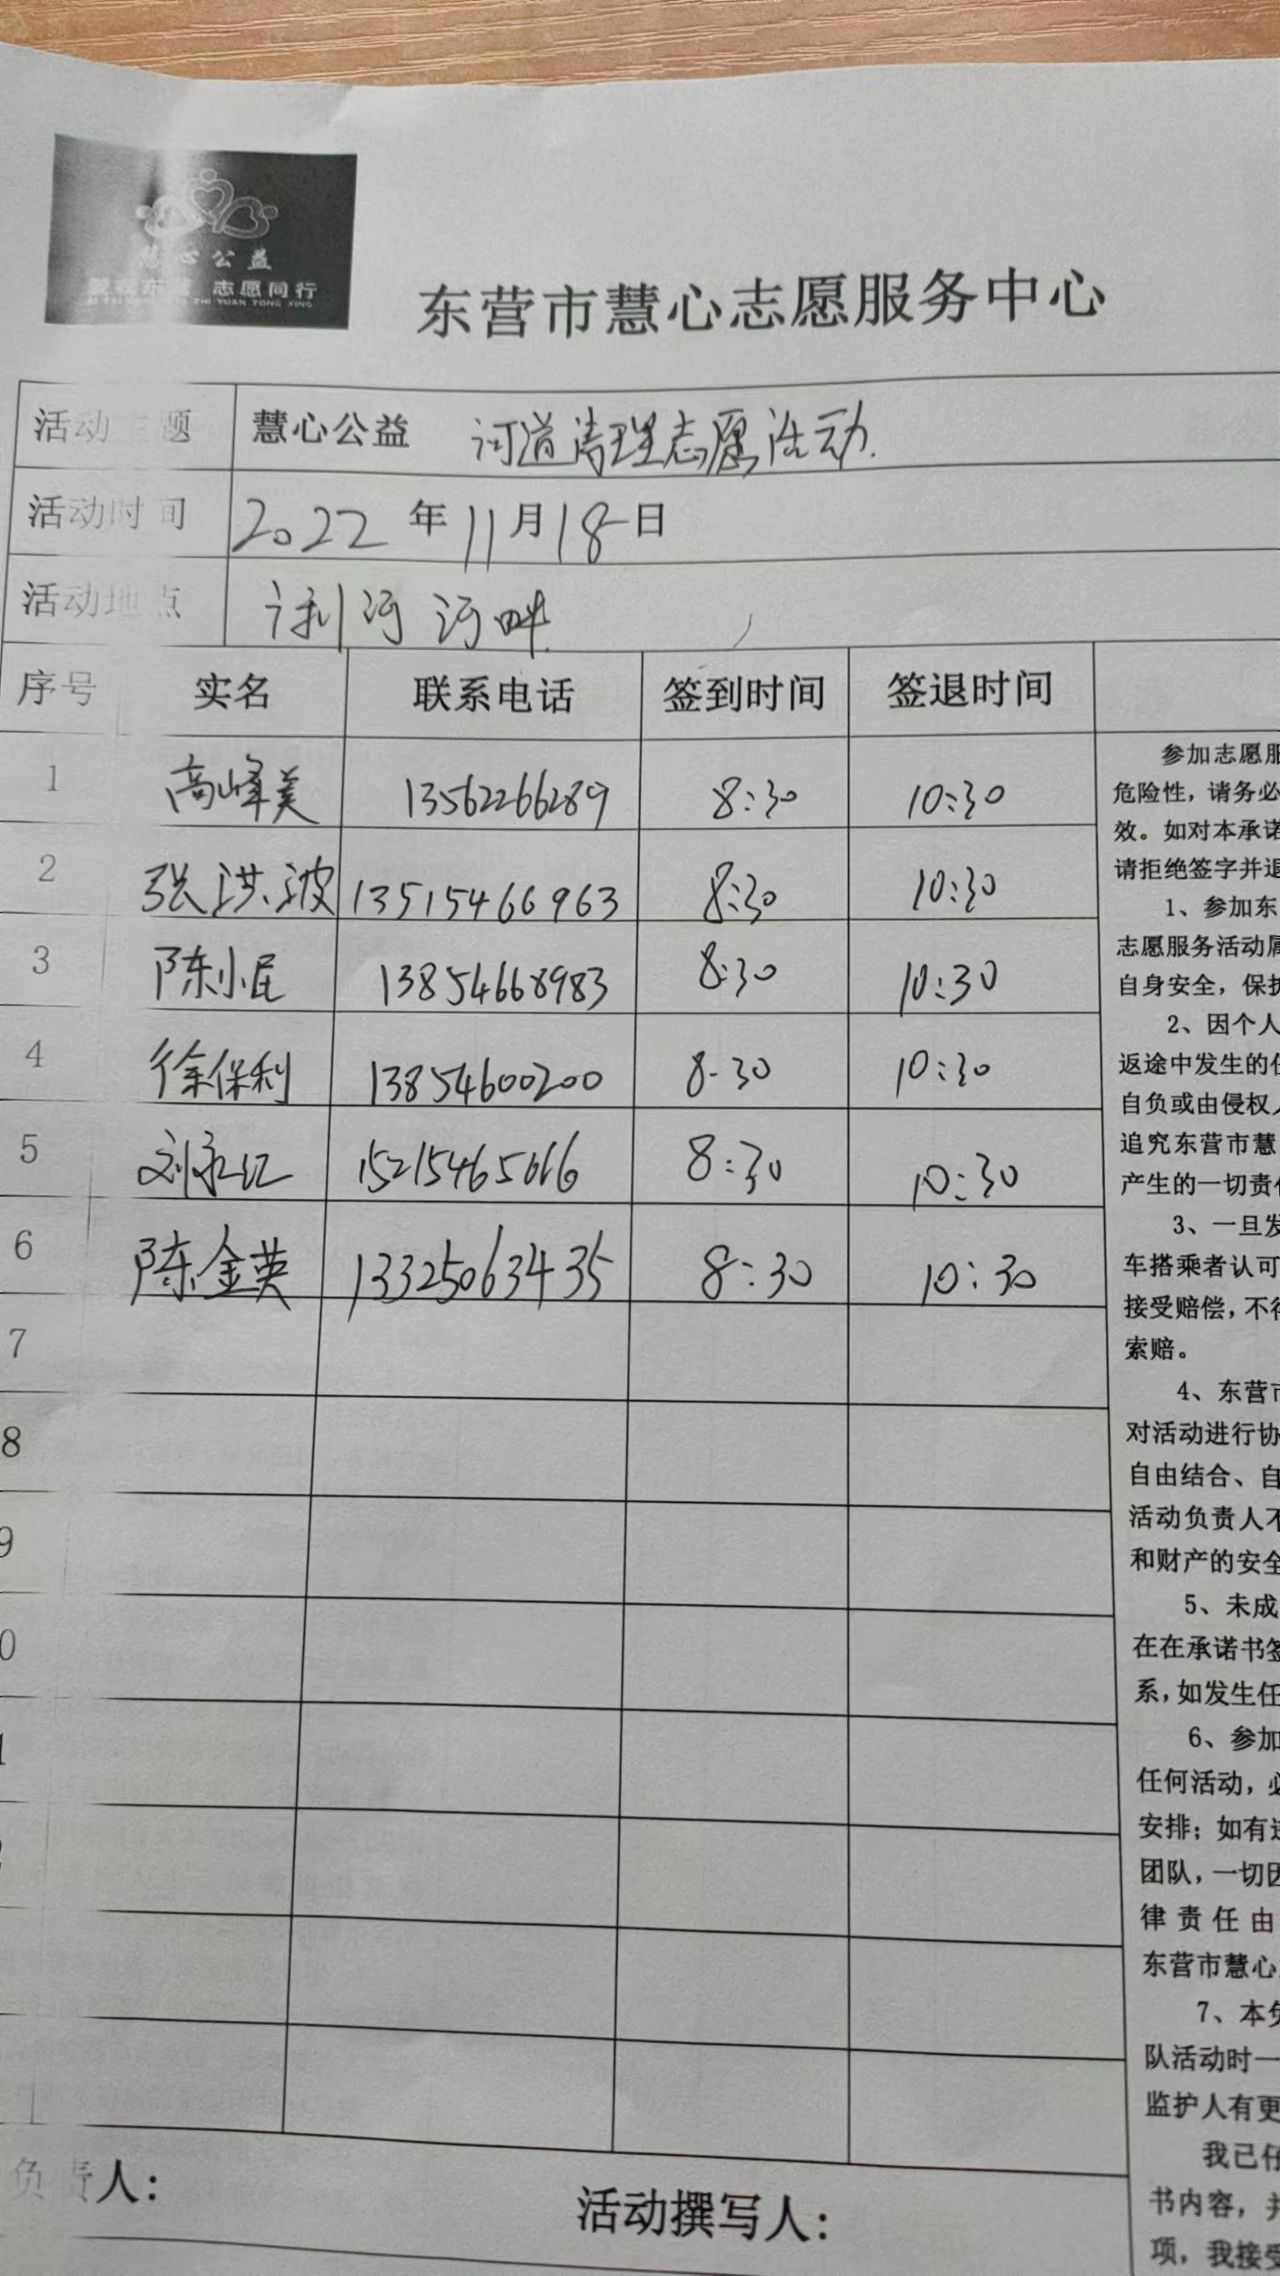 慧心公益
志愿同行
东营市慧心志愿服务中心
活动主题 慧心公益 河道清理志愿活动
活动时间 2022年11月18日
活动地点 河河畔
序号 实名 联系电话 签到时间 签退时间
1 高峰美 13562266289 8:30 10:30
2 张洪波 13515466963 8:30 10:30
3 陈小民 13854668983 8:30 10:30
4 徐保利 13854600200 8:30 10:30
5 刘永红 8:30 10:30
6 陈金英 13325063435 8:30 10:30
7
8
9
0
1
参加志愿服
危险性，请务必
效。如对本承诺
请拒绝签字并退
1、参加东
志愿服务活动属
自身安全，保护
2、因个人
返途中发生的任
自负或由侵权人
追究东营市慧
产生的一切责任
3、一旦发
车搭乘者认可
接受赔偿，不得
索赔。
4、东营市
对活动进行协
自由结合、自
活动负责人不
和财产的安全
5、未成
在在承诺书签
系，如发生任
6、参加
任何活动，必
安排；如有违
团队，一切因
律责任由
东营市慧心
7、本负
队活动时一
监护人有更
我已仔
书内容，并
项，我接受
负责人： 活动撰写人：